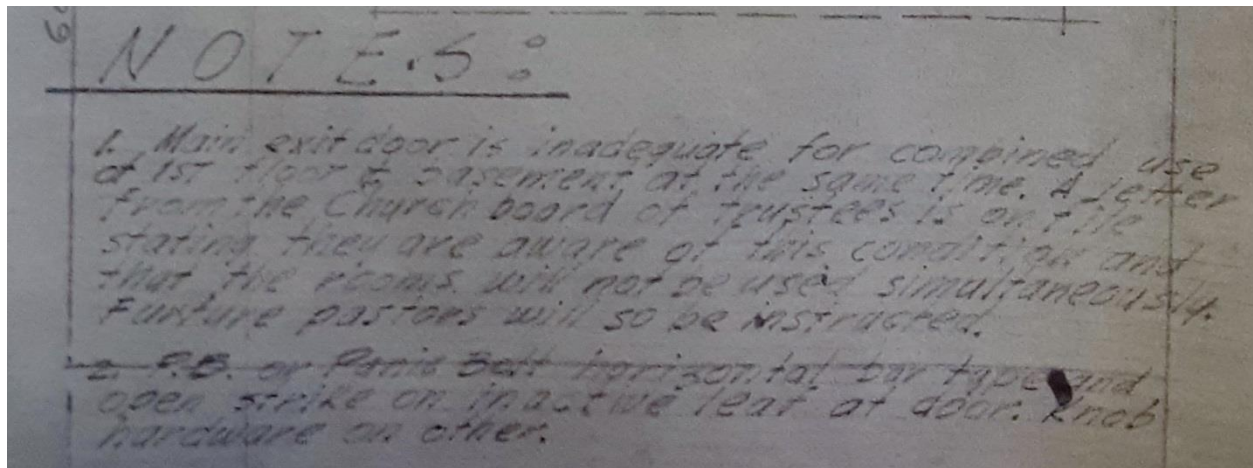 NOTES:
1. Main exit door is inadequate for combined use
of 1st floor & basement at the same time. A letter
from the Church board of trustees is on file
stating they are aware of this condition and
that the rooms will not be used simultaneously.
Furture pastors will so be instructed.
2. P.B. or Panic Bolt horizontal bar type and
open strike on inactive leaf at door. Knob
hardware on other.